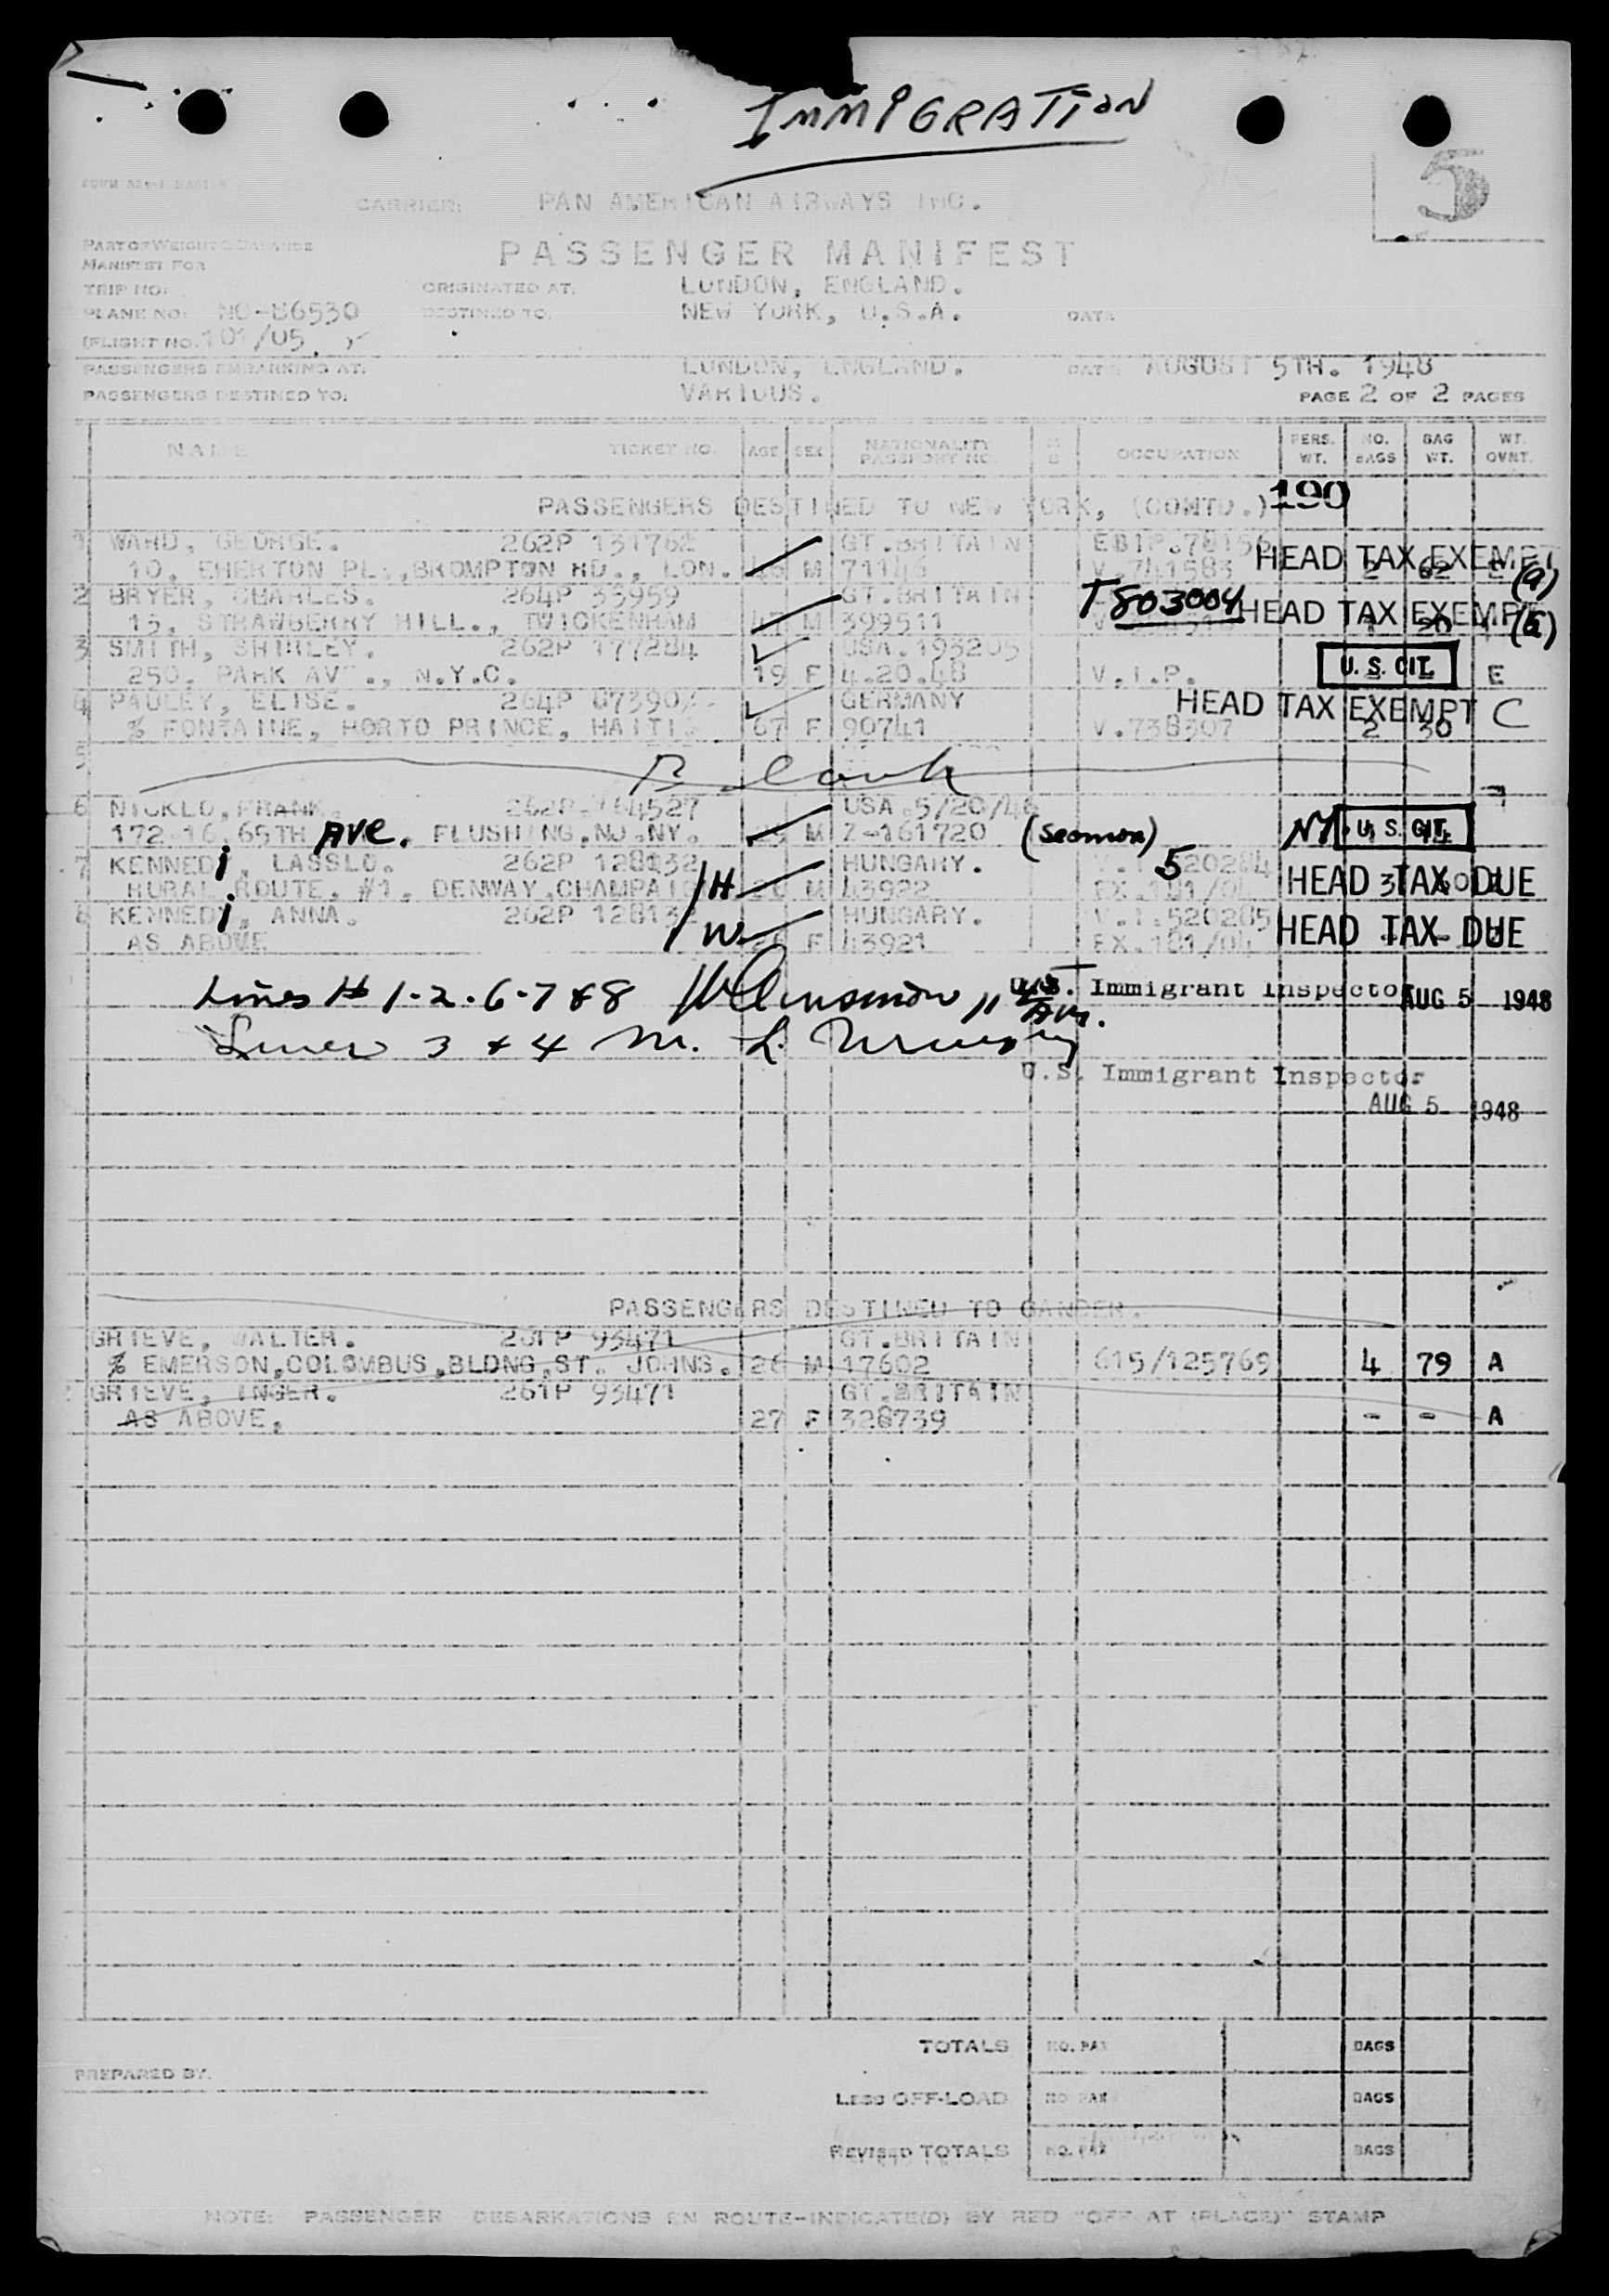 IMMIGRATION
5
CARRIER: PAN AMERICAN AIRWAYS INC.
PART OF WEIGHT & BALANCE
MANIFEST FOR
PASSENGER MANIFEST
TRIP NO: ORIGINATED AT: LONDON, ENGLAND.
PLANE NO: NC-86530 DESTINED TO: NEW YORK, U.S.A. DATE
(FLIGHT NO. 101/05
PASSENGERS EMBARKING AT: LONDON, ENGLAND. DATE AUGUST 5TH. 1948
PASSENGERS DESTINED TO: VARIOUS. PAGE 2 OF 2 PAGES
NAME TICKET NO. AGE SEX NATIONALITY PASSPORT NO. OCCUPATION PERS. WT. NO. BAGS BAG WT. WT. OVNT.
PASSENGERS DESTINED TO NEW YORK, (CONTD.) 190
1 WARD, GEORGE. 262P 131762 GT.BRITAIN EBIP.78156 HEAD TAX EXEMPT
10, EHERTON PL.,BROMPTON RD., LON. M 71146 V.741583 2 62 (a)
2 BRYER, CHARLES. 264P 33959 GT.BRITAIN T803004 HEAD TAX EXEMPT
15, STRAWBERRY HILL., TWICKENHAM M 399511 20 (a)
3 SMITH, SHIRLEY. 262P 177284 USA.193205 U. S. CIT.
250. PARK AVE., N.Y.C. 19 F 4.20.48 V.I.P. E
4 PAULEY, ELISE. 264P 67390 GERMANY HEAD TAX EXEMPT C
% FONTAINE, PORTO PRINCE, HAITI 67 F 90741 V.738307 2 30
5 Blank
6 NICKLO,FRANK. 262P 164527 USA.5/20/46
172-16.65TH AVE. FLUSHING.NU.NY. M Z-161720 (Seaman) NY U. S. CIT.
7 KENNEDI, LASSLO. 262P 128132 HUNGARY. V.I.520284 5
RURAL ROUTE. #1. DENWAY,CHAMPAIG H M 43922 EX.181/04 HEAD TAX DUE
8 KENNEDI, ANNA. 262P 128132 HUNGARY. V.I.520285
AS ABOVE W F 43921 EX.181/04 HEAD TAX DUE
Lines # 1-2-6-7 & 8 U.S. Immigrant Inspector AUG 5 1948
Lines 3 & 4 M. L.
U.S. Immigrant Inspector
AUG 5 1948
PASSENGERS DESTINED TO GANDER.
GRIEVE, WALTER. 261P 93471 GT.BRITAIN
% EMERSON,COLOMBUS,BLDNG,ST. JOHNS. 26 M 17602 615/125769 4 79 A
GRIEVE, INGER. 261P 93471 GT.BRITAIN
AS ABOVE. 27 F 328739 - - A
TOTALS NO. PAX BAGS
PREPARED BY.
LESS OFF-LOAD NO PAX BAGS
REVISED TOTALS NO. PAX BAGS
NOTE: PASSENGER DEBARKATIONS EN ROUTE-INDICATE(D) BY RED "OFF AT (PLACE)" STAMP